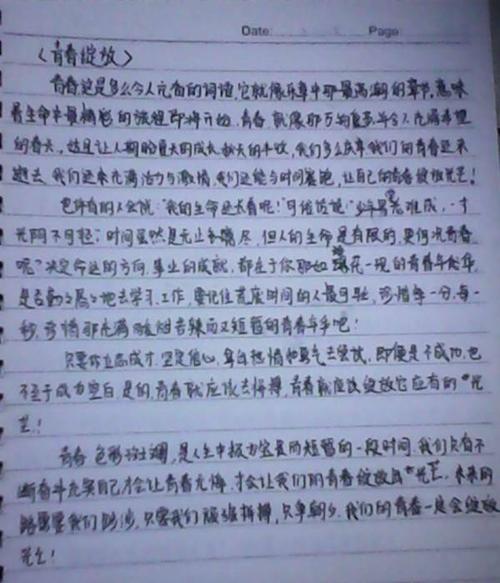 Date: Page:
《青春绽放》
青春这是多么令人元奋的词语,它就像乐章中那最高潮的章节,意味
着生命中最精彩的旅程即将开始.青春就像那万物复苏令人充满希望
的春天,这是让人期盼夏天的成长秋天的丰收,我们多么庆幸我们的青春还未
逝去,我们还未充满活力与激情,我们还能与时间赛跑,让自己的青春绽放光芒!
也许有的人会说:"我的生命还长着呢!"可俗话说:"少年易老难成,一寸
光阴不可轻;时间虽然是无止无尽,但人的生命是有限的,更何况青春
呢?"决定命运的方向,事业的成就,都在于你那如昙花一现的青春年华,
是否勤勤地去学习.工作,要记住荒废时间的人最可耻,珍惜每一分,每一
秒,珍惜那充满酸甜苦辣而又短暂的青春年华吧!
只要你立志成才,坚定信心,拿出热情和勇气去绽放,即便是不成功,也
不至于成为空白.是的,青春就应该去拼搏,青春就应该绽放它应有的"光
芒!
青春色彩斑斓,是人生中极为宝贵而短暂的一段时间.我们只有不
断奋斗充实自己才会让青春无悔,才会让我们的青春绽放出"光芒.未来的
路需要我们跋涉,只要我们顽强拼搏,只争朝夕.我们的青春一定会绽放
光芒!